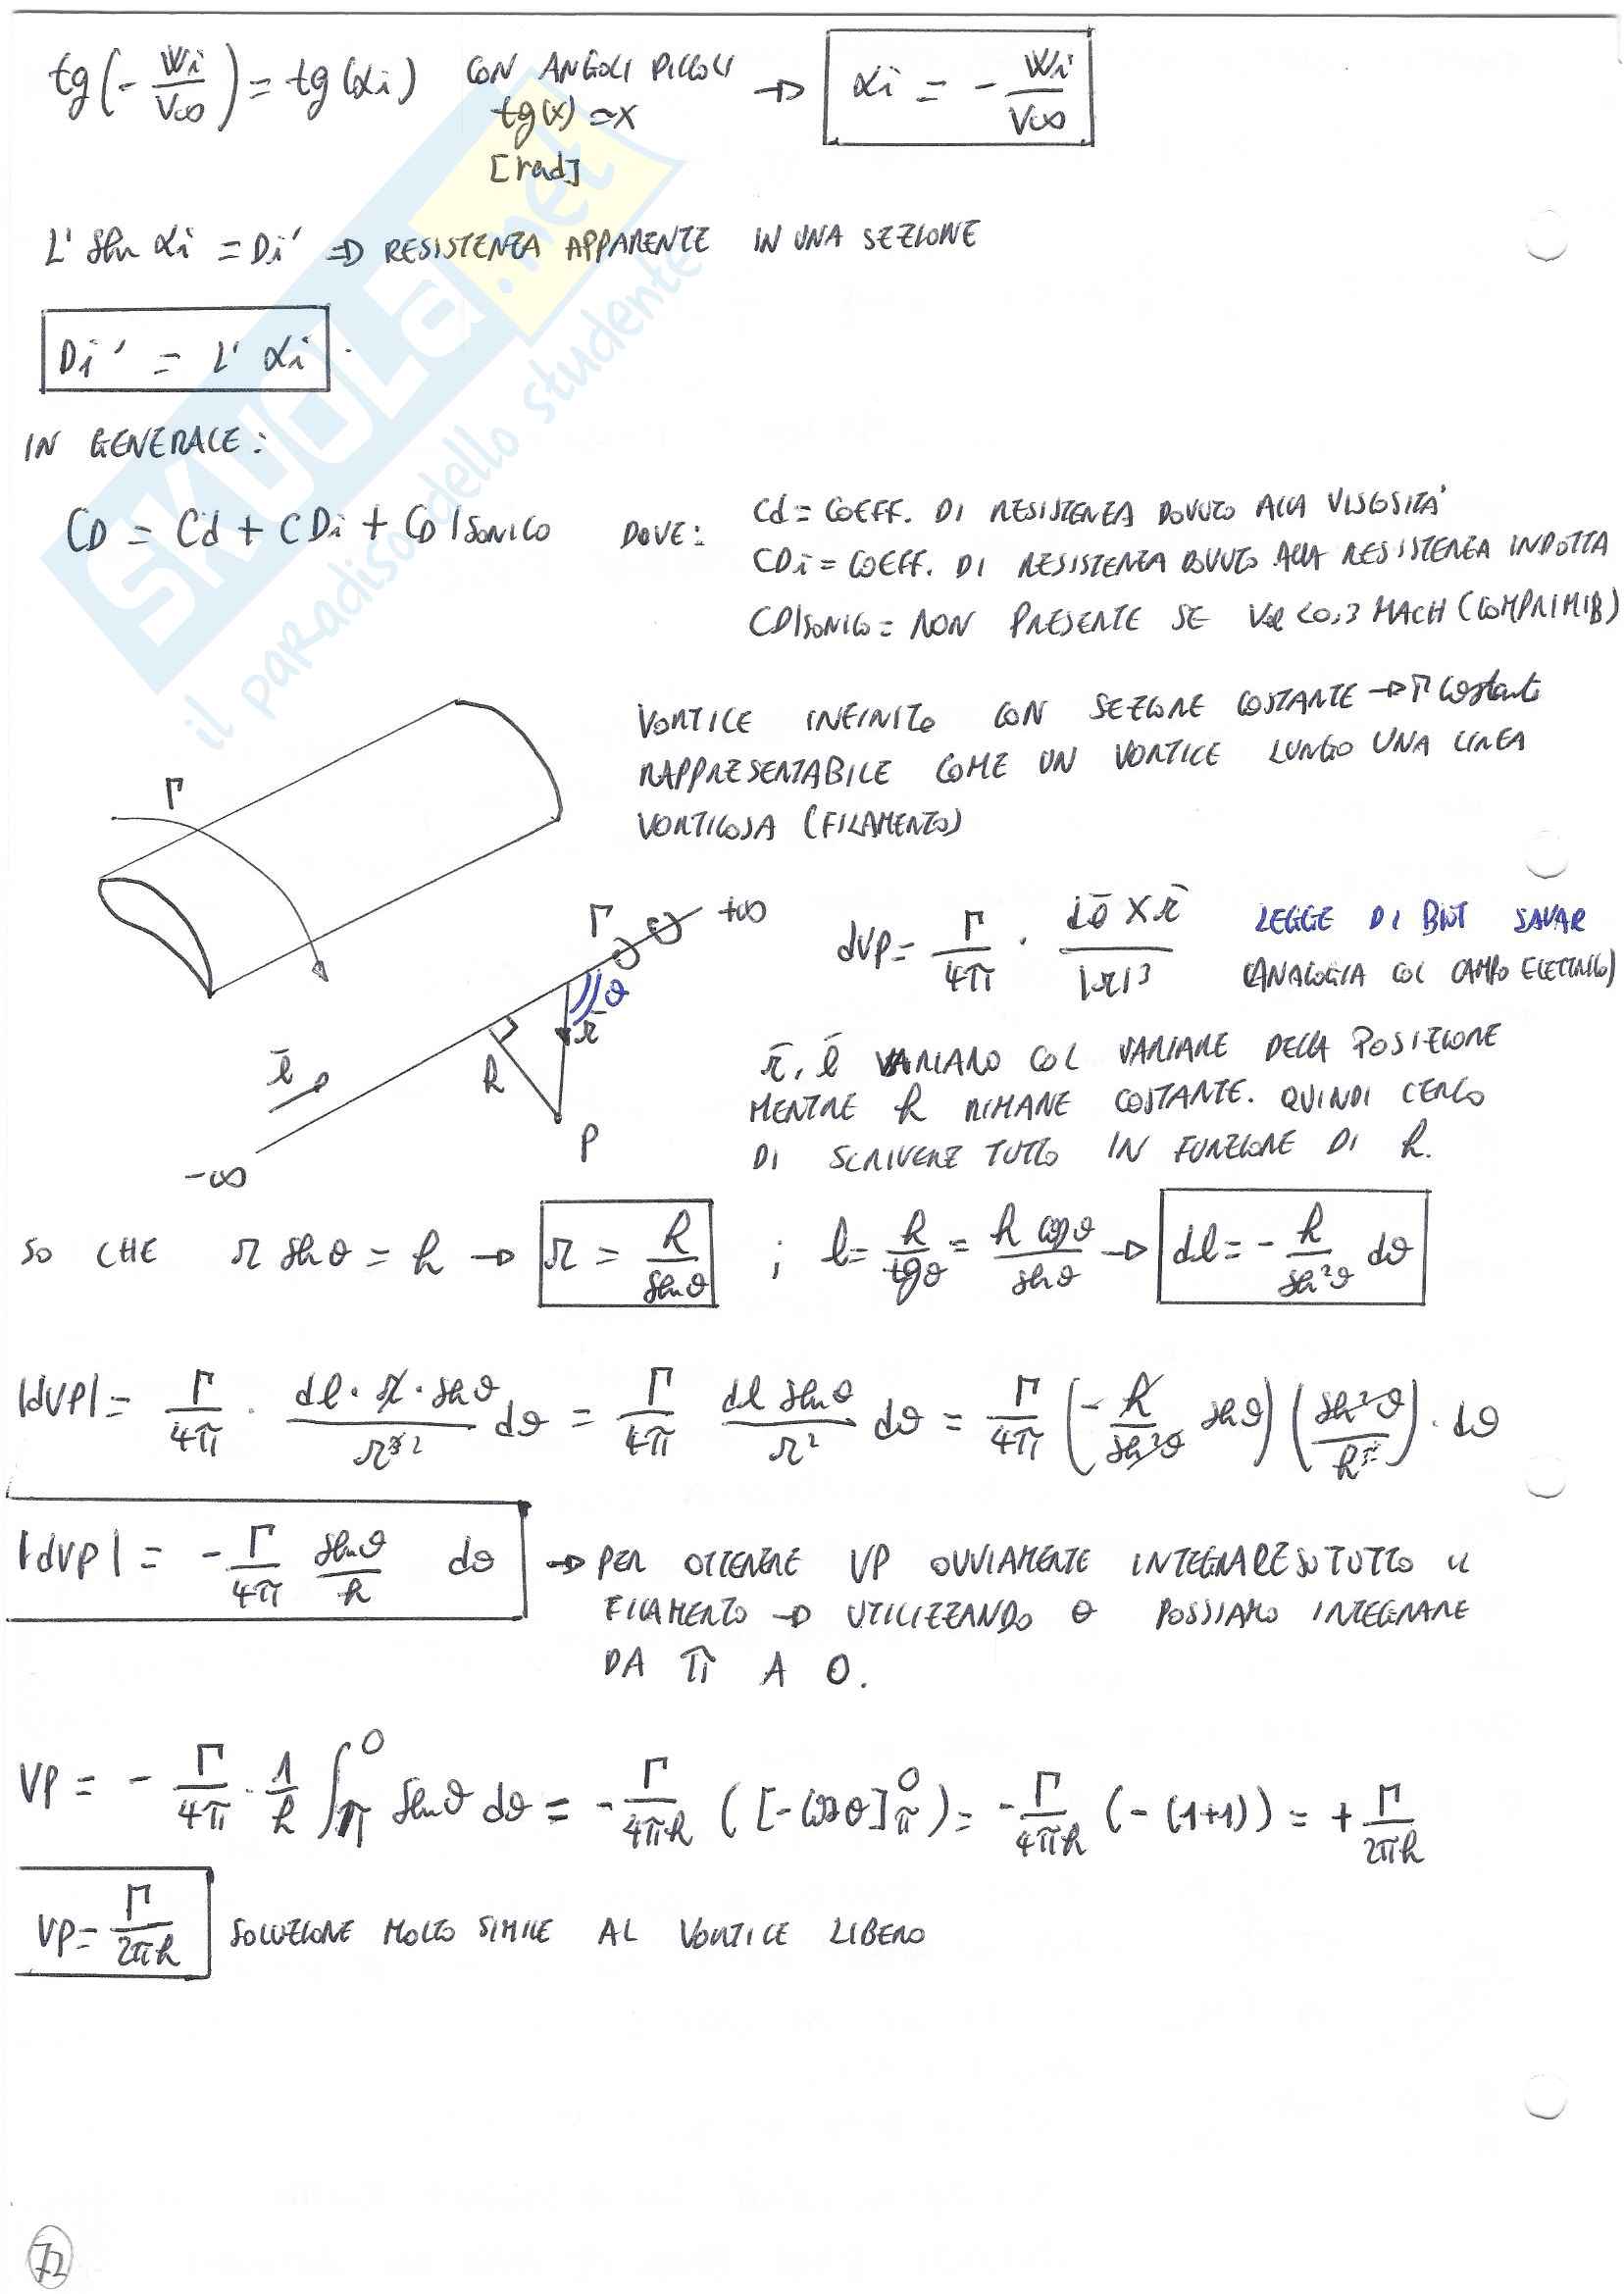 tg(- wi/V∞) = tg(αi) CON ANGOLI PICCOLI → αi = - wi/V∞
tg(x) ≃ x
[rad]
L' sen αi = Di' ⇒ RESISTENZA APPARENTE IN UNA SEZIONE
Di' = L' αi
IN GENERALE:
CD = Cd + CDi + CD|SONICO DOVE:
Cd = COEFF. DI RESISTENZA DOVUTO ALLA VISCOSITA'
CDi = COEFF. DI RESISTENZA DOVUTO ALLA RESISTENZA INDOTTA
CD|SONICO = NON PRESENTE SE Vel < 0,3 MACH (COMPRIMIB)
VORTICE INFINITO CON SEZIONE COSTANTE → Γ costante
RAPPRESENTABILE COME UN VORTICE LUNGO UNA LINEA
VORTICOSA (FILAMENTO)
Γ
Γ +∞
θ
r̄
h
l̄
P
-∞
dVP = Γ/4π · dl̄ × r̄/|r|³ LEGGE DI BIOT SAVAR
(ANALOGIA COL CAMPO ELETTRICO)
r̄, l̄ VARIANO COL VARIARE DELLA POSIZIONE
MENTRE h RIMANE COSTANTE. QUINDI CERCO
DI SCRIVERE TUTTO IN FUNZIONE DI h.
SO CHE r sen θ = h → r = h/sen θ ; l = h/tg θ = h cos θ/sen θ → dl = - h/sen²θ dθ
|dVP| = Γ/4π · dl · r · sen θ/r³² dθ = Γ/4π dl sen θ/r² dθ = Γ/4π (- h/sen²θ sen θ) (sen²θ/h²) · dθ
|dVP| = - Γ/4π sen θ/h dθ → PER OTTENERE VP OVVIAMENTE INTEGRARE SU TUTTO IL
FILAMENTO → UTILIZZANDO θ POSSIAMO INTEGRARE
DA π A 0.
VP = - Γ/4π · 1/h ∫π0 sen θ dθ = - Γ/4πh ([-cos θ]π0) = - Γ/4πh (-(1+1)) = + Γ/2πh
VP = Γ/2πh SOLUZIONE MOLTO SIMILE AL VORTICE LIBERO
72
SKUOLA.net
il paradiso dello studente